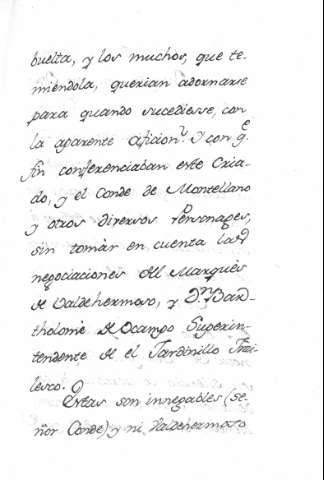 buelta, y los muchos, que te-
miéndola, querian adornarse
para quando sucediesse, con
la aparente aficion. Y con q.e
fin conferenciaban este Cria-
do, y el Conde de Montellano
y otros diversos Personages,
sin tomàr en cuenta las
negociaciones del Marquès
de Valdehermoso, y D.n Bar-
tholomè de Ocampo Superin-
tendente de el Jardinillo Frai-
lesco.
Estas son innegables (se-
ñor Conde) y ni Valdehermoso